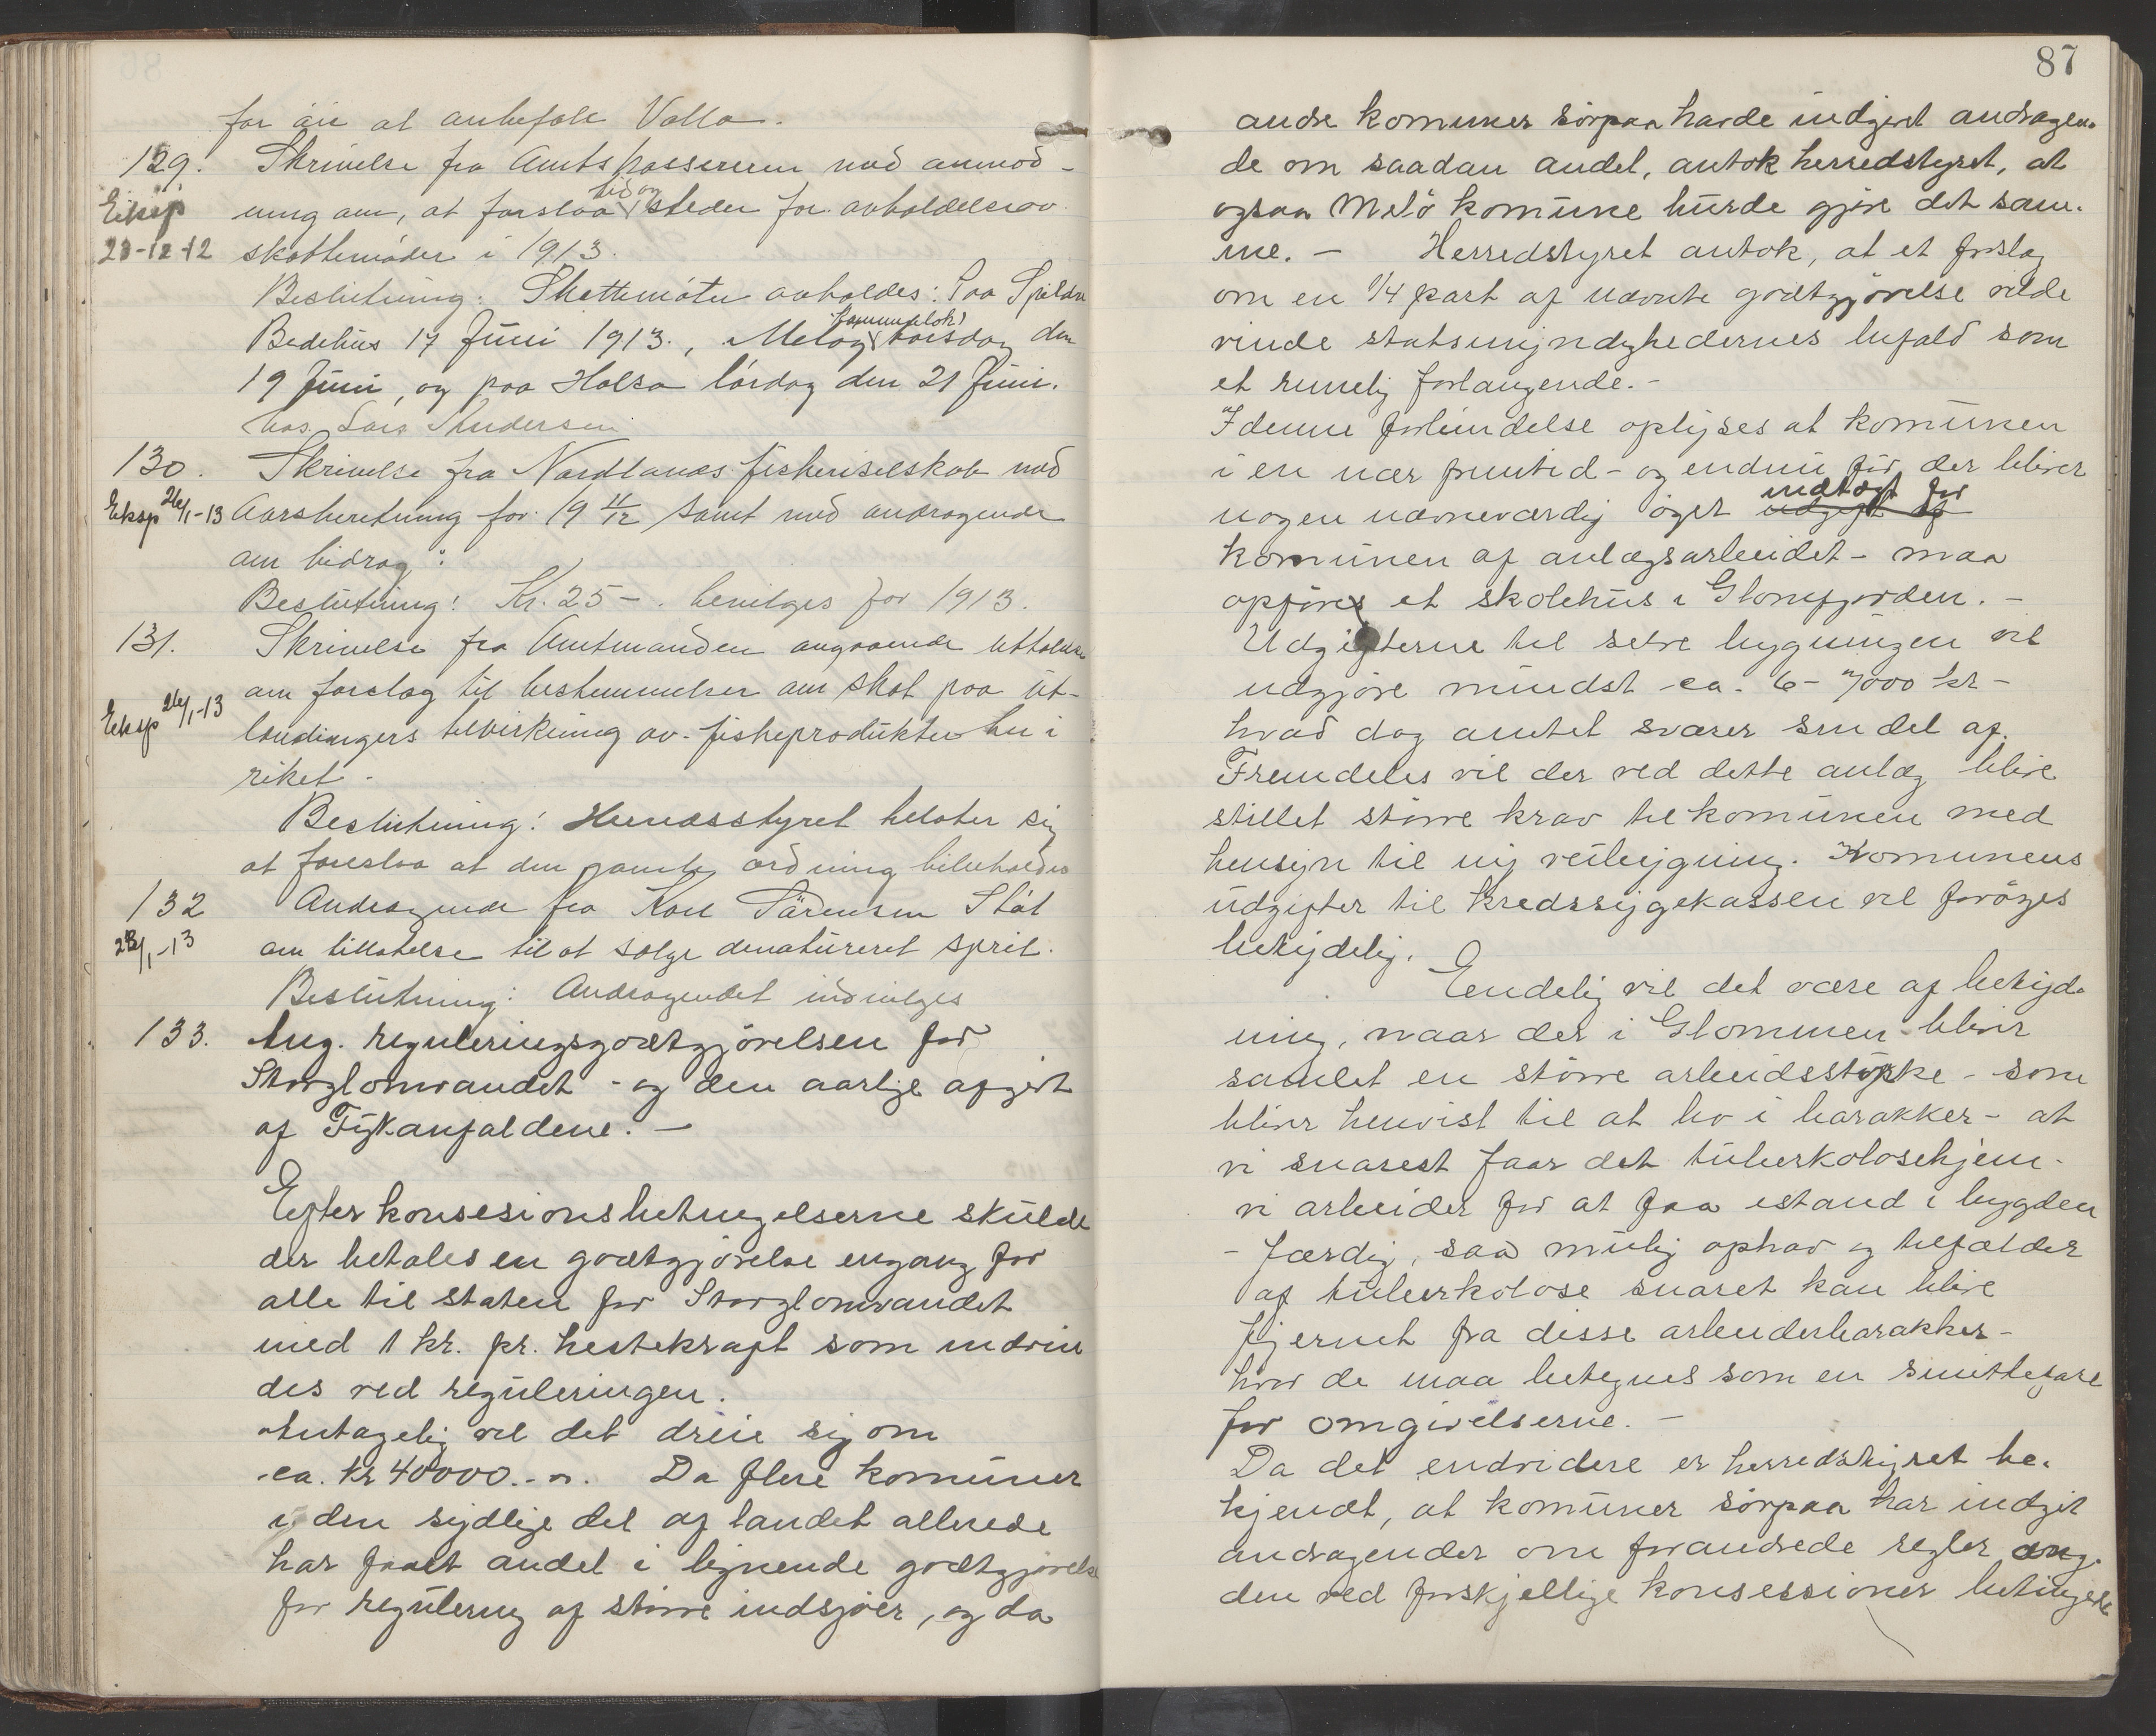 for øie at anbefale Valla.
129. Skrivelse fra Amtskassereren med anmod-
Eksp ning om, at forslaa tid og steder for avholdelse av
28-12-12 skattemøder i 1913.
Beslutning: Skattemøter avholdes: Paa Spildre
Bedehus 17 Juni 1913., Meløy (kommunelok) torsdag den
19 Juni, og paa Halsa lørdag den 21 Juni.
hos Lars Andersen
130. Skrivelse fra Nordlands fiskeriselskab med
Eksp 26/1-13 Aarsberetning for 19 11/12 samt med andragende
om bidrag:
Beslutning: Kr. 25-. bevilges for 1913.
131. Skrivelse fra Amtmanden angaaende uttalelse
Eksp 26/1-13 om forslag til bestemmelser om skat paa ut-
lændingers tilvirkning av fiskeprodukter her i
riket.
Beslutning: Herredsstyret tillater sig
at foreslaa at den gamle ordning bibeholdes
132 Andragende fra Karl Sørensen Støt
28/1-13 om tillatelse til at sælge denatureret sprit.
Beslutning: Andragendet indvilges
133. Ang. reguleringsgodtgjørelsen for
Storglomvandet - og den aarlige afgivt
af Fykanfaldene. —
Efter konsesionsbetingelserne skulde
der betales en godtgjørelse engang for
alle til staten for Storglomvandet
med 1 kr. pr. hestekraft som indvin
des ved reguleringen.
Antagelig vil det dreie sig om
ca. kr 40000.-. Da flere komuner
i den sydlige del af landet allerede
har faaet andel i lignende godtgjørelse
for regulering af større indsjøer, og da
87
andre komuner sørpaa havde indgivet andragen-
de om saadan andel, antok herredstyret, at
ogsaa Melø komune burde gjøre det sam-
me. — Herredstyret antok, at et forslag
om en 1/4 part af nævnte godtgjørelse vilde
vinde statsmyndighedernes bifald som
et rimelig forlangende. -
I denne forbindelse oplyses at komunen
i en nær fremtid - og endnu før der bliver
nogen nævneværdig øget udgift af indtægt for
komunen af anlægsarbeidet - maa
opføres et skolehus i Glomfjorden. -
Udgifterne til selve bygningen vil
udgjøre mindst ca. 6- 7000 kr -
hvad dog amtet svarer sin del af.
Fremdeles vil der ved dette anlæg blive
stillet større krav til komunen med
hensyn til ny veibygning. Komunens
udgifter til kredssygekassen vil forøges
betydelig.
Endelig vil det være af betyd-
ning, naar der i Glommen blivir
samlet en større arbeidsstyrke - som
bliver henvist til at bo i barakker - at
vi snarest faar det tuberkolosehjem -
vi arbeider for at faa istand i bygden
- færdig, saa mulig ophav og tilfælder
af tuberkolose snarest kan blive
fjernet fra disse arbeiderbarakker -
hvor de maa betegnes som en smittefare
for omgivelserne. -
Da det endvidere er herredstyret be-
kjendt, at komuner sørpaa har indgit
andragender om forandrede regler ang.
den ved forskjellige konsessioner betingede